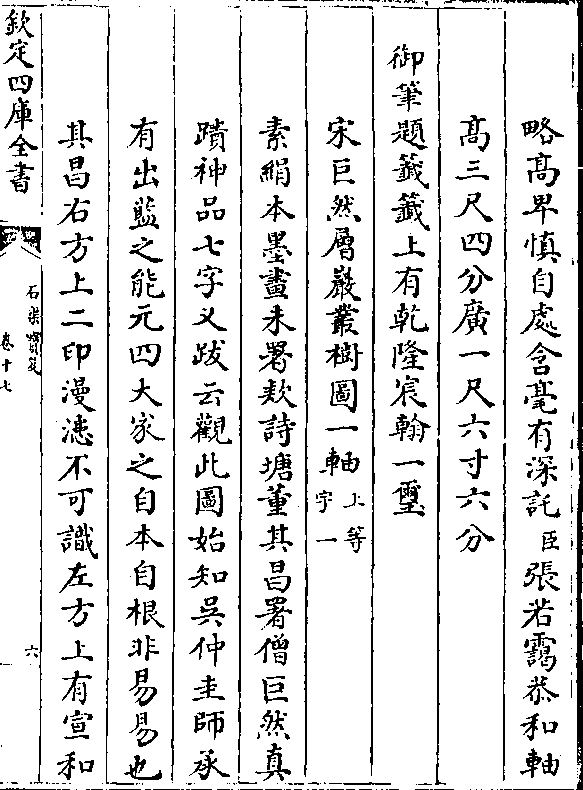 略高卑慎自處含毫有深託臣張若靄恭和軸
高三尺四分廣一尺六寸六分
御筆題籤籤上有乾隆宸翰一璽
宋巨然層巖叢樹圖一軸上等字一
素絹本墨畫未署欵詩塘董其昌署僧巨然真
蹟神品七字又跋云觀此圖始知吳仲圭師承
有出藍之能元四大家之自本自根非易易也
其昌右方上二印漫漶不可識左方上有宣和
欽定四庫全書
石渠寶笈
卷十七
六